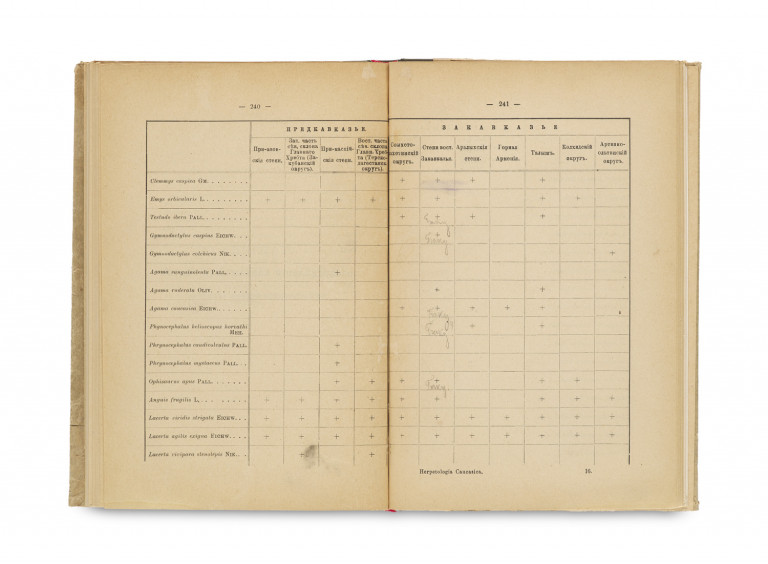 — 240 —
ПРЕДКАВКАЗЬЕ.
При-азов-
скія степи.
Зап. часть
сѣв. склона
Главнаго
Хребта (За-
кубанскій
округъ).
При-каспій-
скія степи.
Вост. часть
сѣв. склона
Главн. Хреб-
та (Терско-
дагестанск.
округъ).
Clemmys caspica Gm.
Emys orbicularis L. + + + +
Testudo ibera Pall.
Gymnodactylus caspius Eichw.
Gymnodactylus colchicus Nik.
Agama sanguinolenta Pall. +
Agama ruderata Oliv.
Agama caucasica Eichw.
Phrynocephalus helioscopus horvathi
Meh.
Phrynocephalus caudivolvulus Pall. +
Phrynocephalus mystaceus Pall. +
Ophisaurus apus Pall. + +
Anguis fragilis L. + + + +
Lacerta viridis strigata Eichw. + + + +
Lacerta agilis exigua Eichw. + + + +
Lacerta vivipara stenolepis Nik. + +
— 241 —
ЗАКАВКАЗЬЕ
округъ.
Степи вост.
Закавказья.
степи.
Горная
Арменія.
Талышъ.
Колхидскій
округъ.
округъ.
+ + + +
+ + + +
+ + + +
+
+
+ +
+ + + + +
+ + +
+ + + +
+ + + + +
+ + + + + + +
+ + + + + + +
Herpetologia Caucasica.
16.